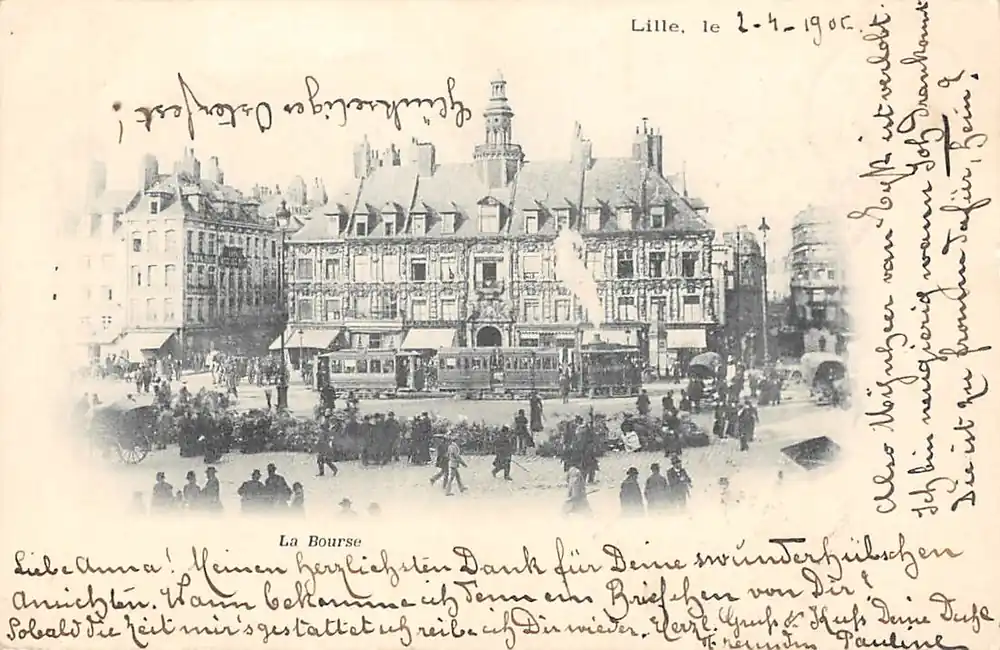 Lille, le 2-4-190
Glückseliges Osterfest!
La Bourse
Liebe Anna! Meinen herzlichsten Dank für Deine wunderhübschen
Ansichten. Wann bekomme ich denn ein Briefchen von Dir?
Sobald die Zeit mir's gestattet schreibe ich Dir wieder. Herzl. Gruss & Kuss Deine
Freundin Pauline
Also Mijnheer van Eeft ist verlobt.
Ich bin neugierig wann Ich drankomt
Die ist zu fromm dafür, hein?